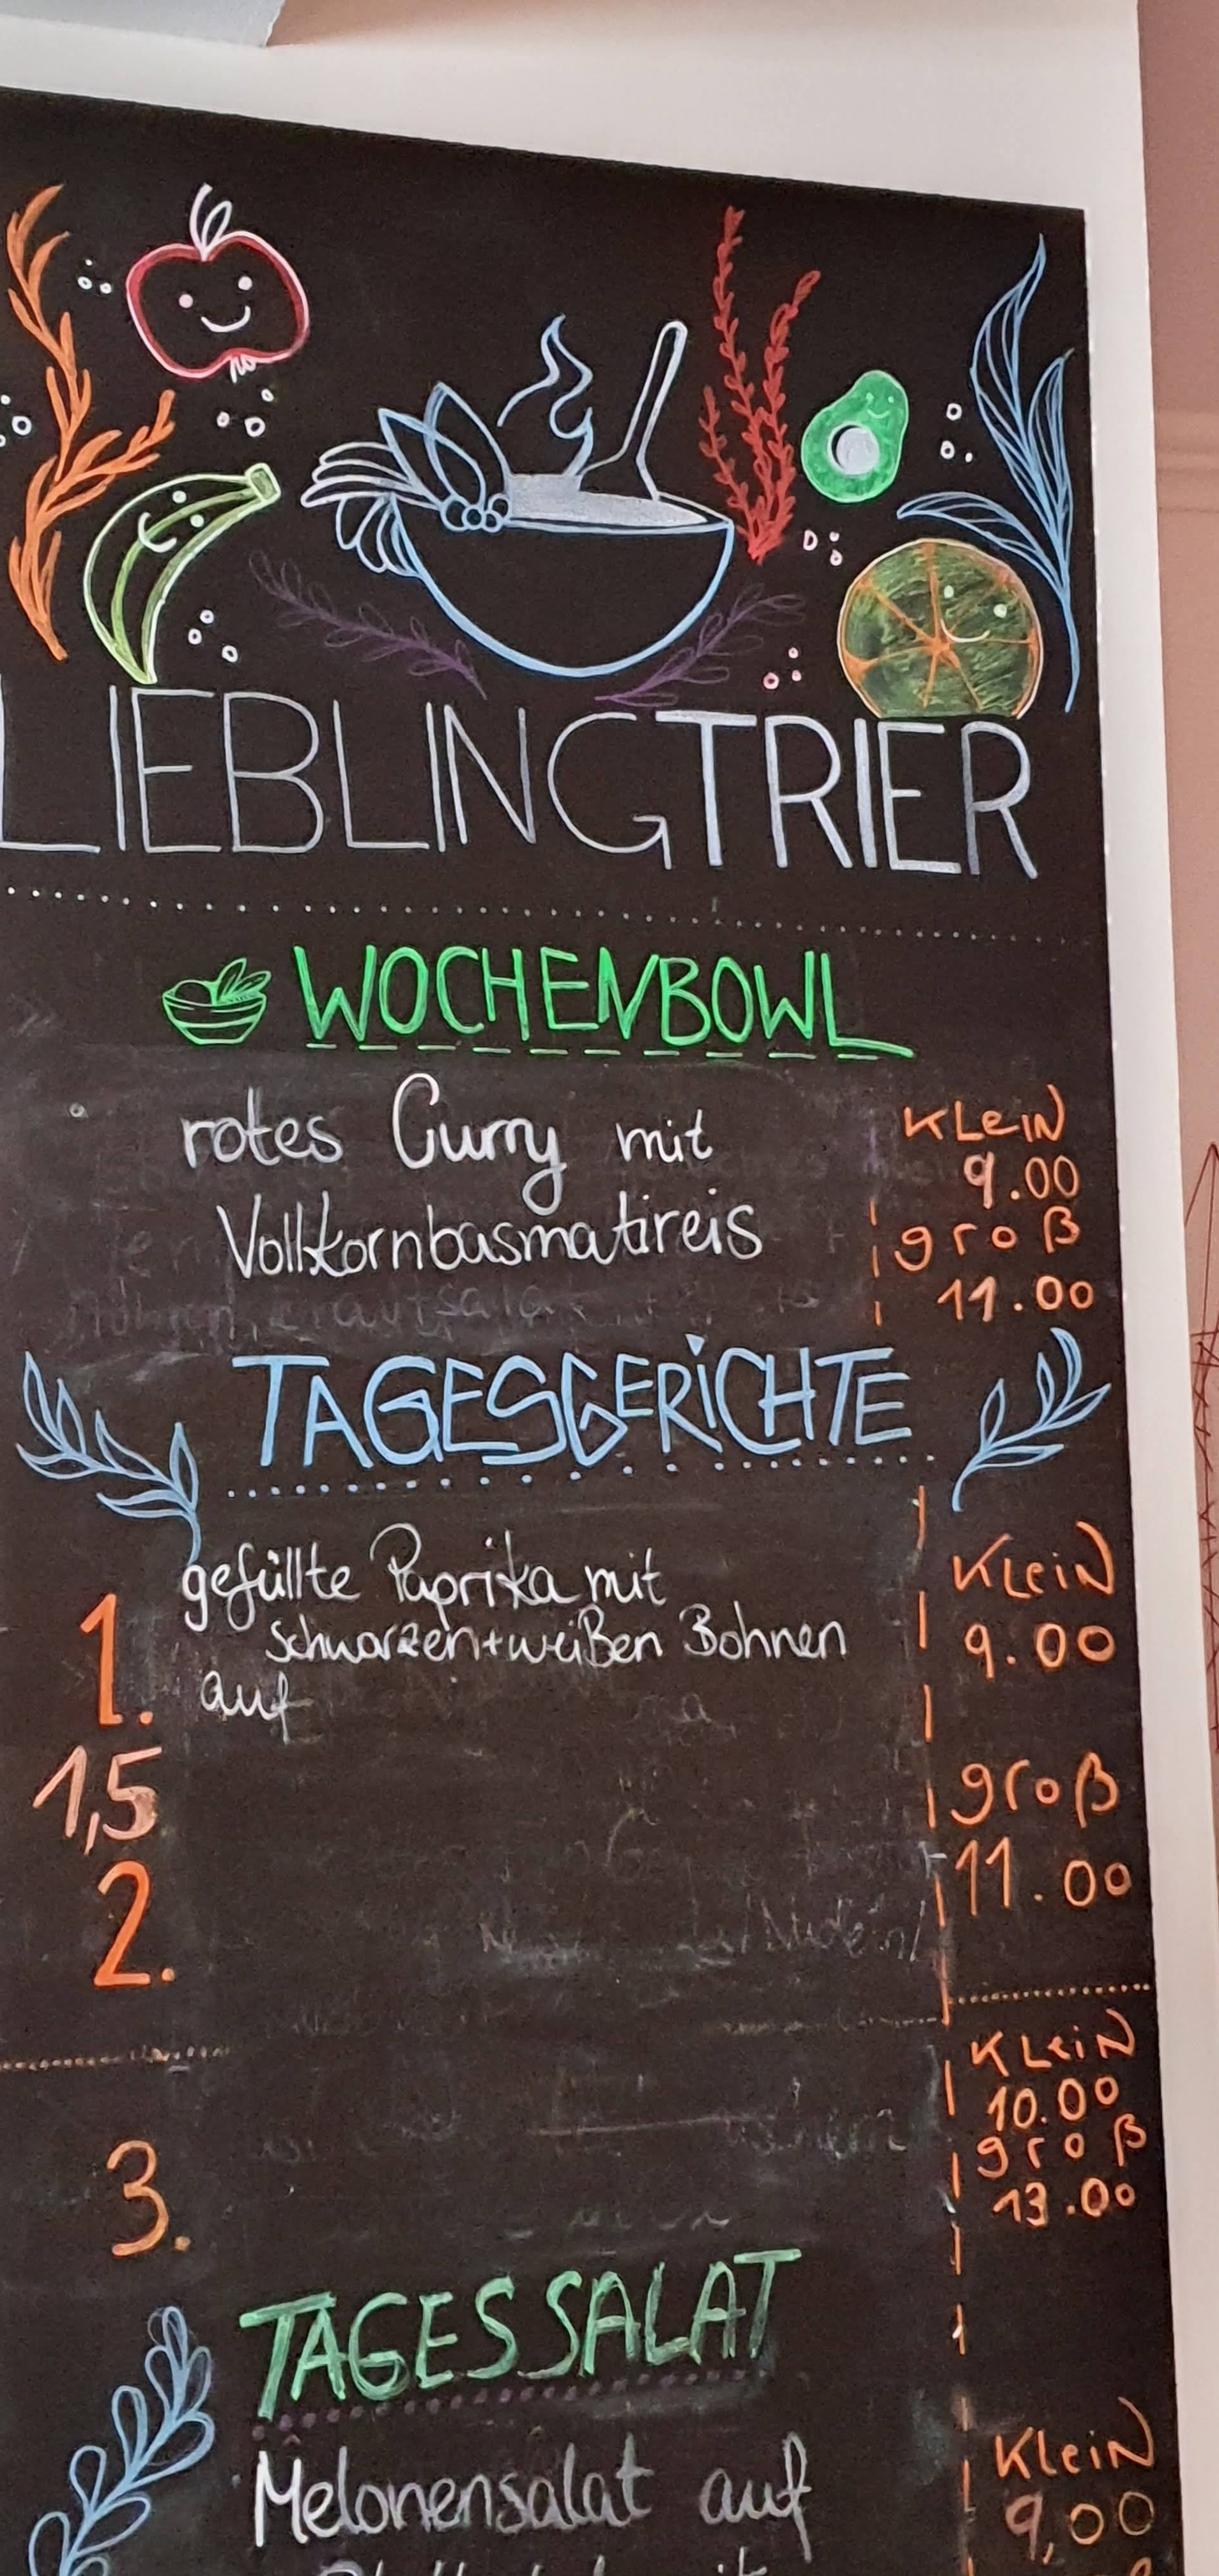 LIEBLINGTRIER
WOCHENBOWL
rotes Curry mit
Vollkornbasmatireis
KLEIN
9.00
groß
11.00
TAGESGERICHTE
1.
gefüllte Paprika mit
schwarzen+weißen Bohnen
auf
KLEIN
9.00
1,5
groß
11.00
2.
KLEIN
10.00
groß
13.00
3.
TAGESSALAT
Melonensalat auf
KLEIN
9,00